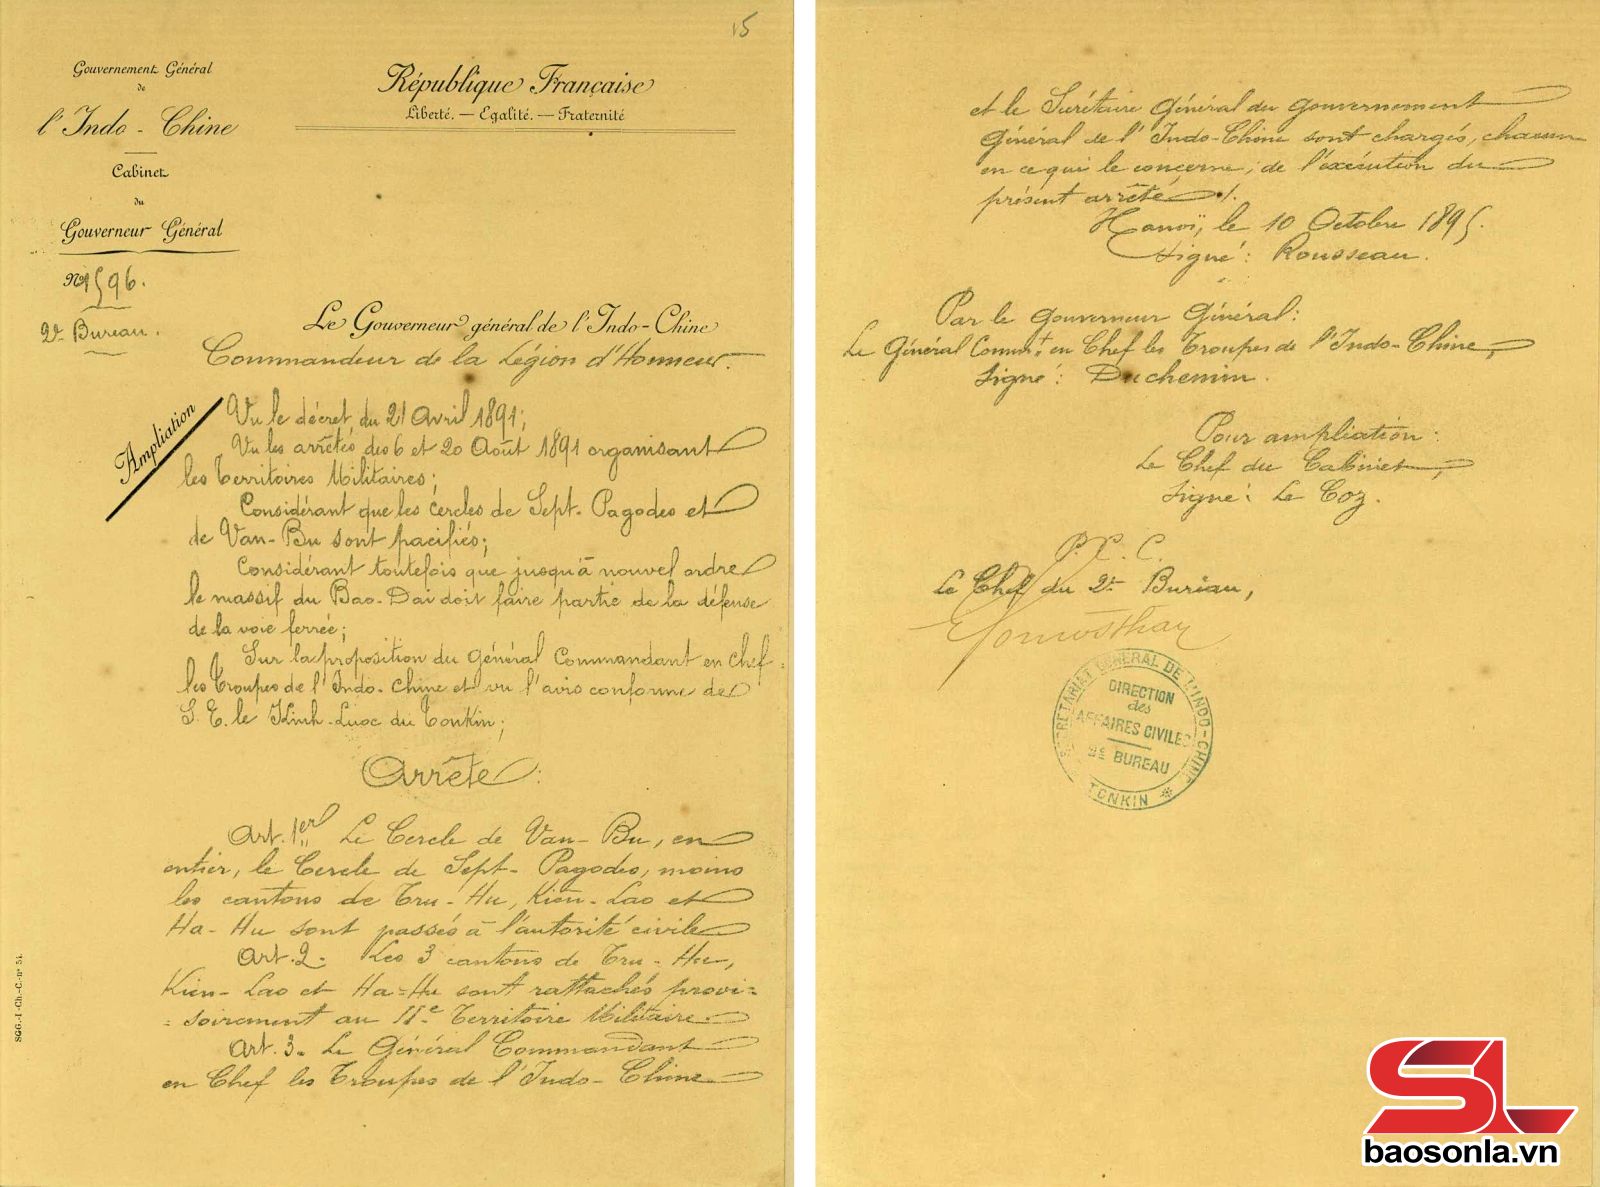 15
Gouvernement Général
de
l'Indo-Chine
Cabinet
du
Gouverneur Général
N° 1596.
2e Bureau.
République Française
Liberté. — Egalité. — Fraternité
Le Gouverneur général de l'Indo-Chine
Commandeur de la Légion d'Honneur.
Ampliation
Vu le décret du 21 Avril 1891;
Vu les arrêtés des 6 et 20 Août 1891 organisant
les Territoires Militaires;
Considérant que les cercles de Sept-Pagodes et
de Van-Bu sont pacifiés;
Considérant toutefois que jusqu'à nouvel ordre
le massif du Bao-Dai doit faire partie de la défense
de la voie ferrée;
Sur la proposition du Général Commandant en Chef
les Troupes de l'Indo-Chine et vu l'avis conforme de
S. E. le Kinh-Luoc du Tonkin;
Arrête:
Art. 1er Le Cercle de Van-Bu, en
entier, le Cercle de Sept-Pagodes, moins
les cantons de Tru-Hu, Kien-Lao et
Ha-Hu sont passés à l'autorité civile
Art. 2. Les 3 cantons de Tru-Hu,
Kien-Lao et Ha-Hu sont rattachés provi=
=soirement au IIe Territoire Militaire.
Art. 3. Le Général Commandant
en Chef les Troupes de l'Indo-Chine
SGG.-I-Ch.-C.-n° 51.
et le Secrétaire Général du Gouvernement
Général de l'Indo-Chine sont chargés, chacun
en ce qui le concerne, de l'exécution du
présent arrêté ./.
Hanoï, le 10 Octobre 1895.
Signé: Rousseau.
Par le Gouverneur Général:
Le Général Commt en Chef les Troupes de l'Indo-Chine,
Signé: Duchemin.
Pour ampliation:
Le Chef du Cabinet,
Signé: Le Coz.
P. C. C.
Le Chef du 2e Bureau,
SECRÉTARIAT GÉNÉRAL DE L'INDO-CHINE
DIRECTION
des
AFFAIRES CIVILES
2E BUREAU
TONKIN
SL
baosonla.vn